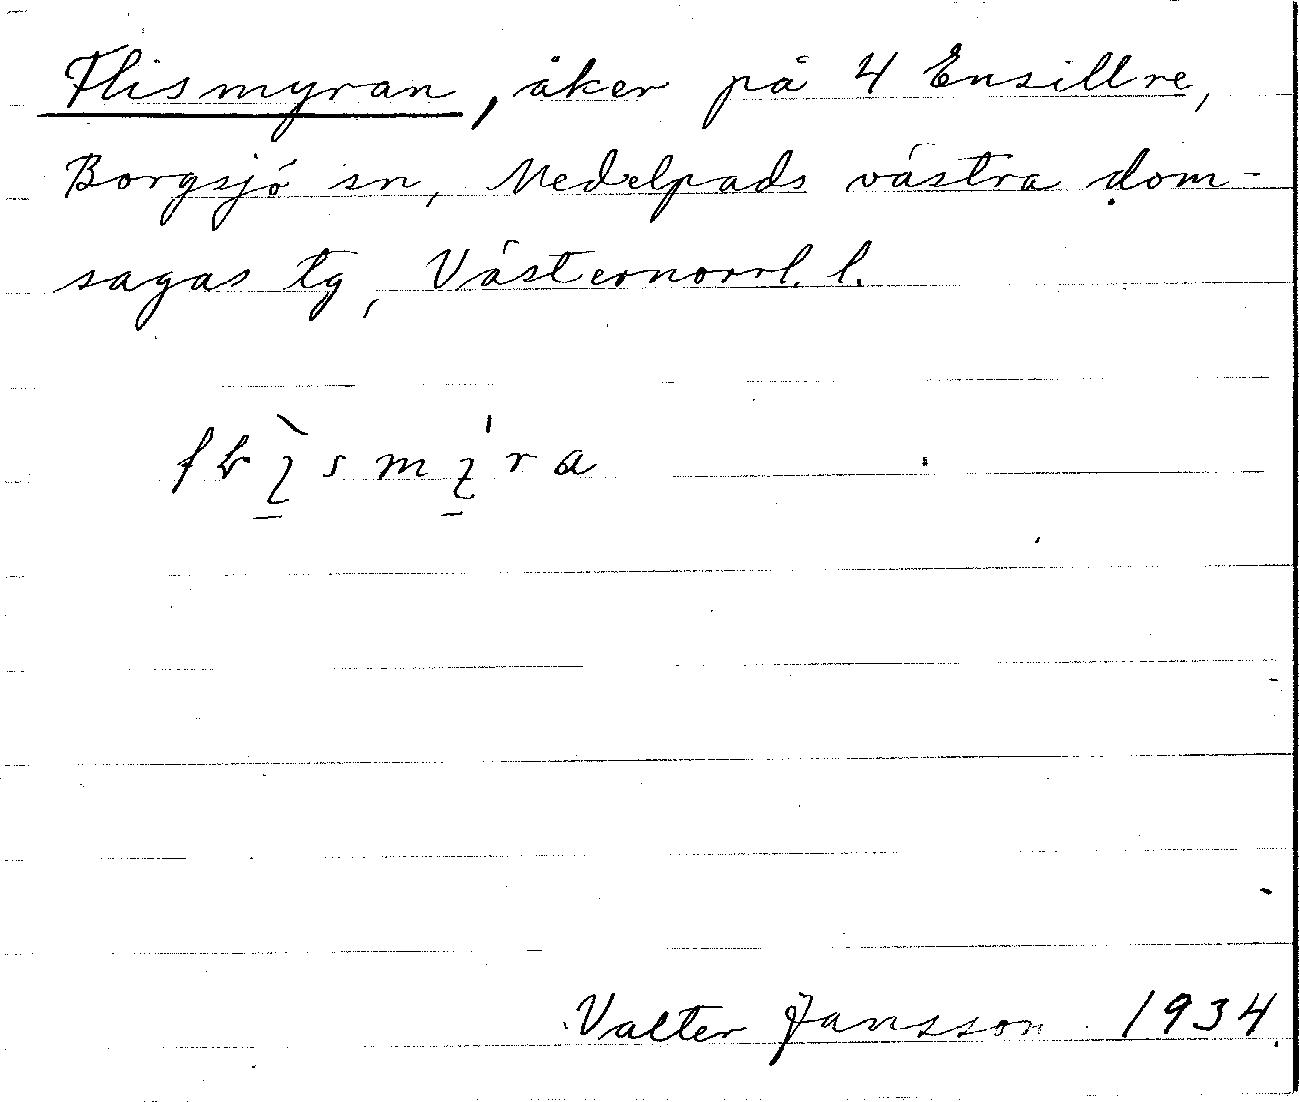 Flismyran, åker på 4 Ensillre,
Borgsjö sn, Medelpads västra dom-
sagas tg, Västernorrl. l.
Valter Jansson 1934